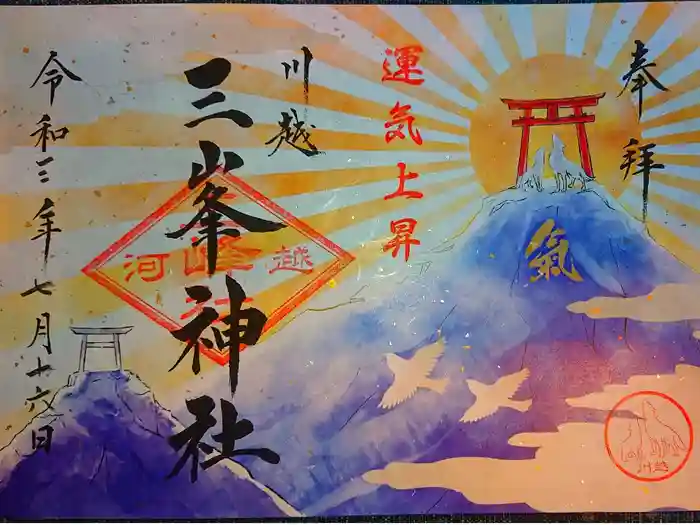 奉拝
運気上昇
川越
三峯神社
令和三年七月十六日
氣
河
越
川越